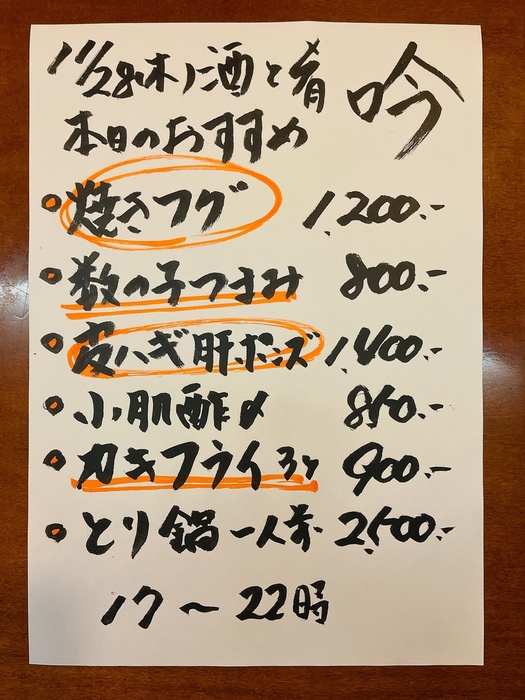 11/28(木)酒と肴 吟
本日のおすすめ
・焼きフグ 1,200.-
・数の子つまみ 800.-
・皮ハギ肝ポンズ 1,400.-
・小肌酢〆 850.-
・カキフライ3ヶ 900.-
・とり鍋一人前 2,500.-
17～22時